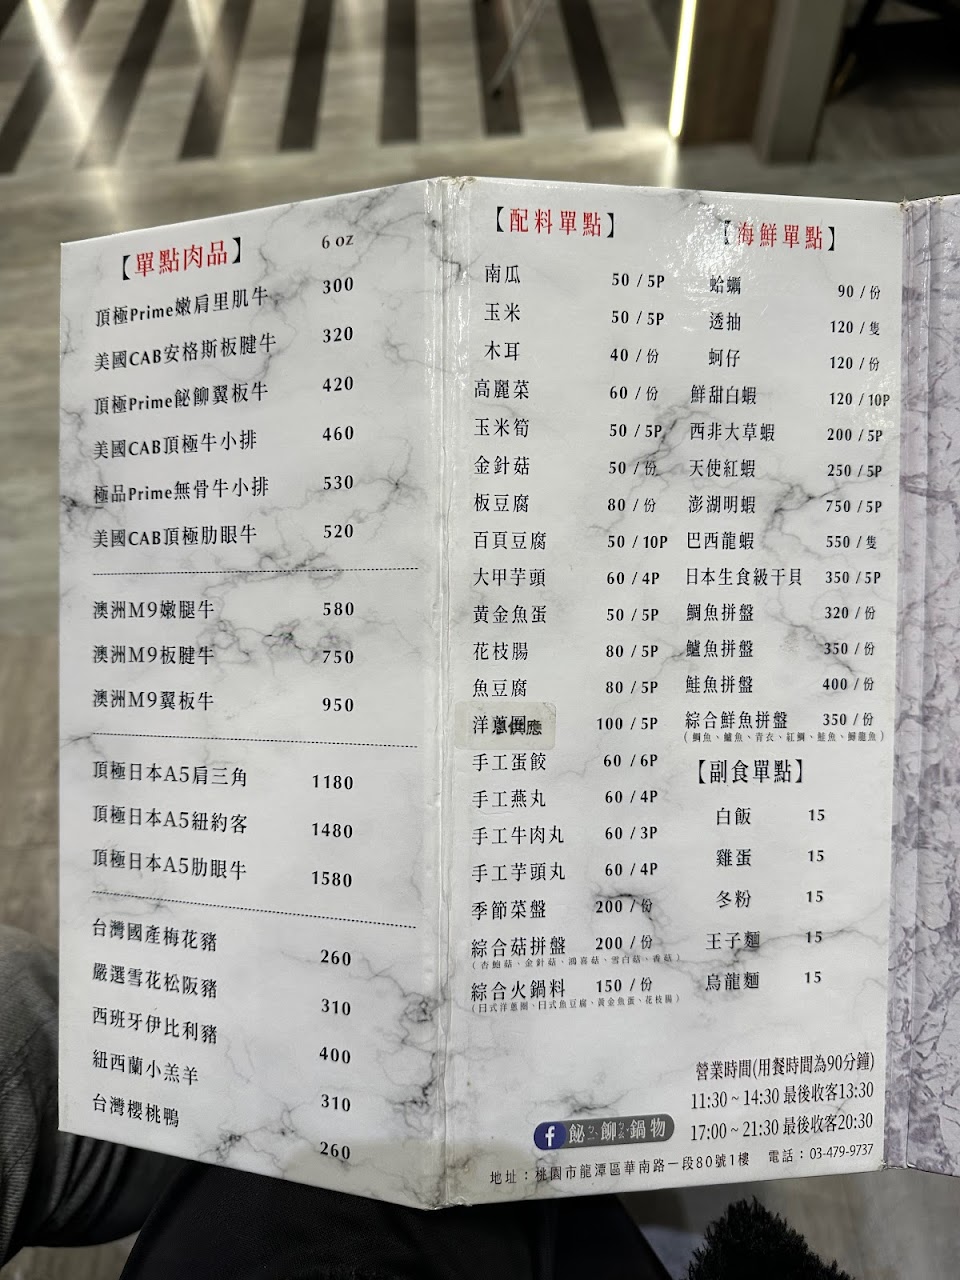 【單點肉品】 6 oz
頂極Prime嫩肩里肌牛 300
美國CAB安格斯板腱牛 320
頂極Prime飶飹翼板牛 420
美國CAB頂極牛小排 460
極品Prime無骨牛小排 530
美國CAB頂極肋眼牛 520
澳洲M9嫩腿牛 580
澳洲M9板腱牛 750
澳洲M9翼板牛 950
頂極日本A5肩三角 1180
頂極日本A5紐約客 1480
頂極日本A5肋眼牛 1580
台灣國產梅花豬 260
嚴選雪花松阪豬 310
西班牙伊比利豬 400
紐西蘭小羔羊 310
台灣櫻桃鴨 260
【配料單點】
南瓜 50 / 5P
玉米 50 / 5P
木耳 40 / 份
高麗菜 60 / 份
玉米筍 50 / 5P
金針菇 50 / 份
板豆腐 80 / 份
百頁豆腐 50 / 10P
大甲芋頭 60 / 4P
黃金魚蛋 50 / 5P
花枝腸 80 / 5P
魚豆腐 80 / 5P
洋 100 / 5P
手工蛋餃 60 / 6P
手工燕丸 60 / 4P
手工牛肉丸 60 / 3P
手工芋頭丸 60 / 4P
季節菜盤 200 / 份
綜合菇拼盤 200 / 份
(杏鮑菇、金針菇、鴻喜菇、雪白菇、香菇)
綜合火鍋料 150 / 份
(日式洋蔥圈、日式魚豆腐、黃金魚蛋、花枝腸)
【海鮮單點】
蛤蠣 90 / 份
透抽 120 / 隻
蚵仔 120 / 份
鮮甜白蝦 120 / 10P
西非大草蝦 200 / 5P
天使紅蝦 250 / 5P
澎湖明蝦 750 / 5P
巴西龍蝦 550 / 隻
日本生食級干貝 350 / 5P
鯛魚拼盤 320 / 份
鱸魚拼盤 350 / 份
鮭魚拼盤 400 / 份
綜合鮮魚拼盤 350 / 份
(鯛魚、鱸魚、青衣、紅鯛、鮭魚、鱘龍魚)
【副食單點】
白飯 15
雞蛋 15
冬粉 15
王子麵 15
烏龍麵 15
營業時間(用餐時間為90分鐘)
11:30 ~ 14:30 最後收客13:30
17:00 ~ 21:30 最後收客20:30
f 飶飹鍋物
地址：桃園市龍潭區華南路一段80號1樓 電話：03-479-9737